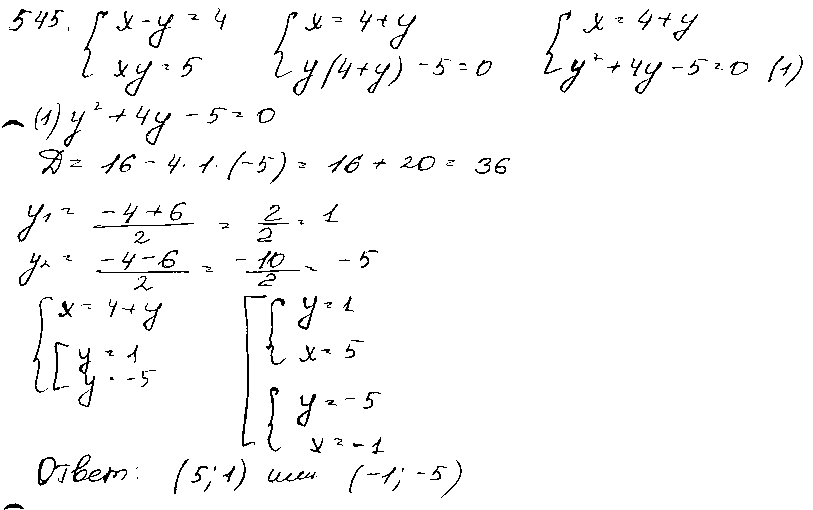 545. { x - y = 4 { x = 4 + y { x = 4 + y
xy = 5 y(4+y) - 5 = 0 y² + 4y - 5 = 0 (1)
(1) y² + 4y - 5 = 0
D = 16 - 4·1·(-5) = 16 + 20 = 36
y₁ = (-4+6)/2 = 2/2 = 1
y₂ = (-4-6)/2 = -10/2 = -5
{ x = 4 + y [ { y = 1
[ y = 1 x = 5
y = -5 { y = -5
x = -1
Ответ: (5; 1) или (-1; -5)